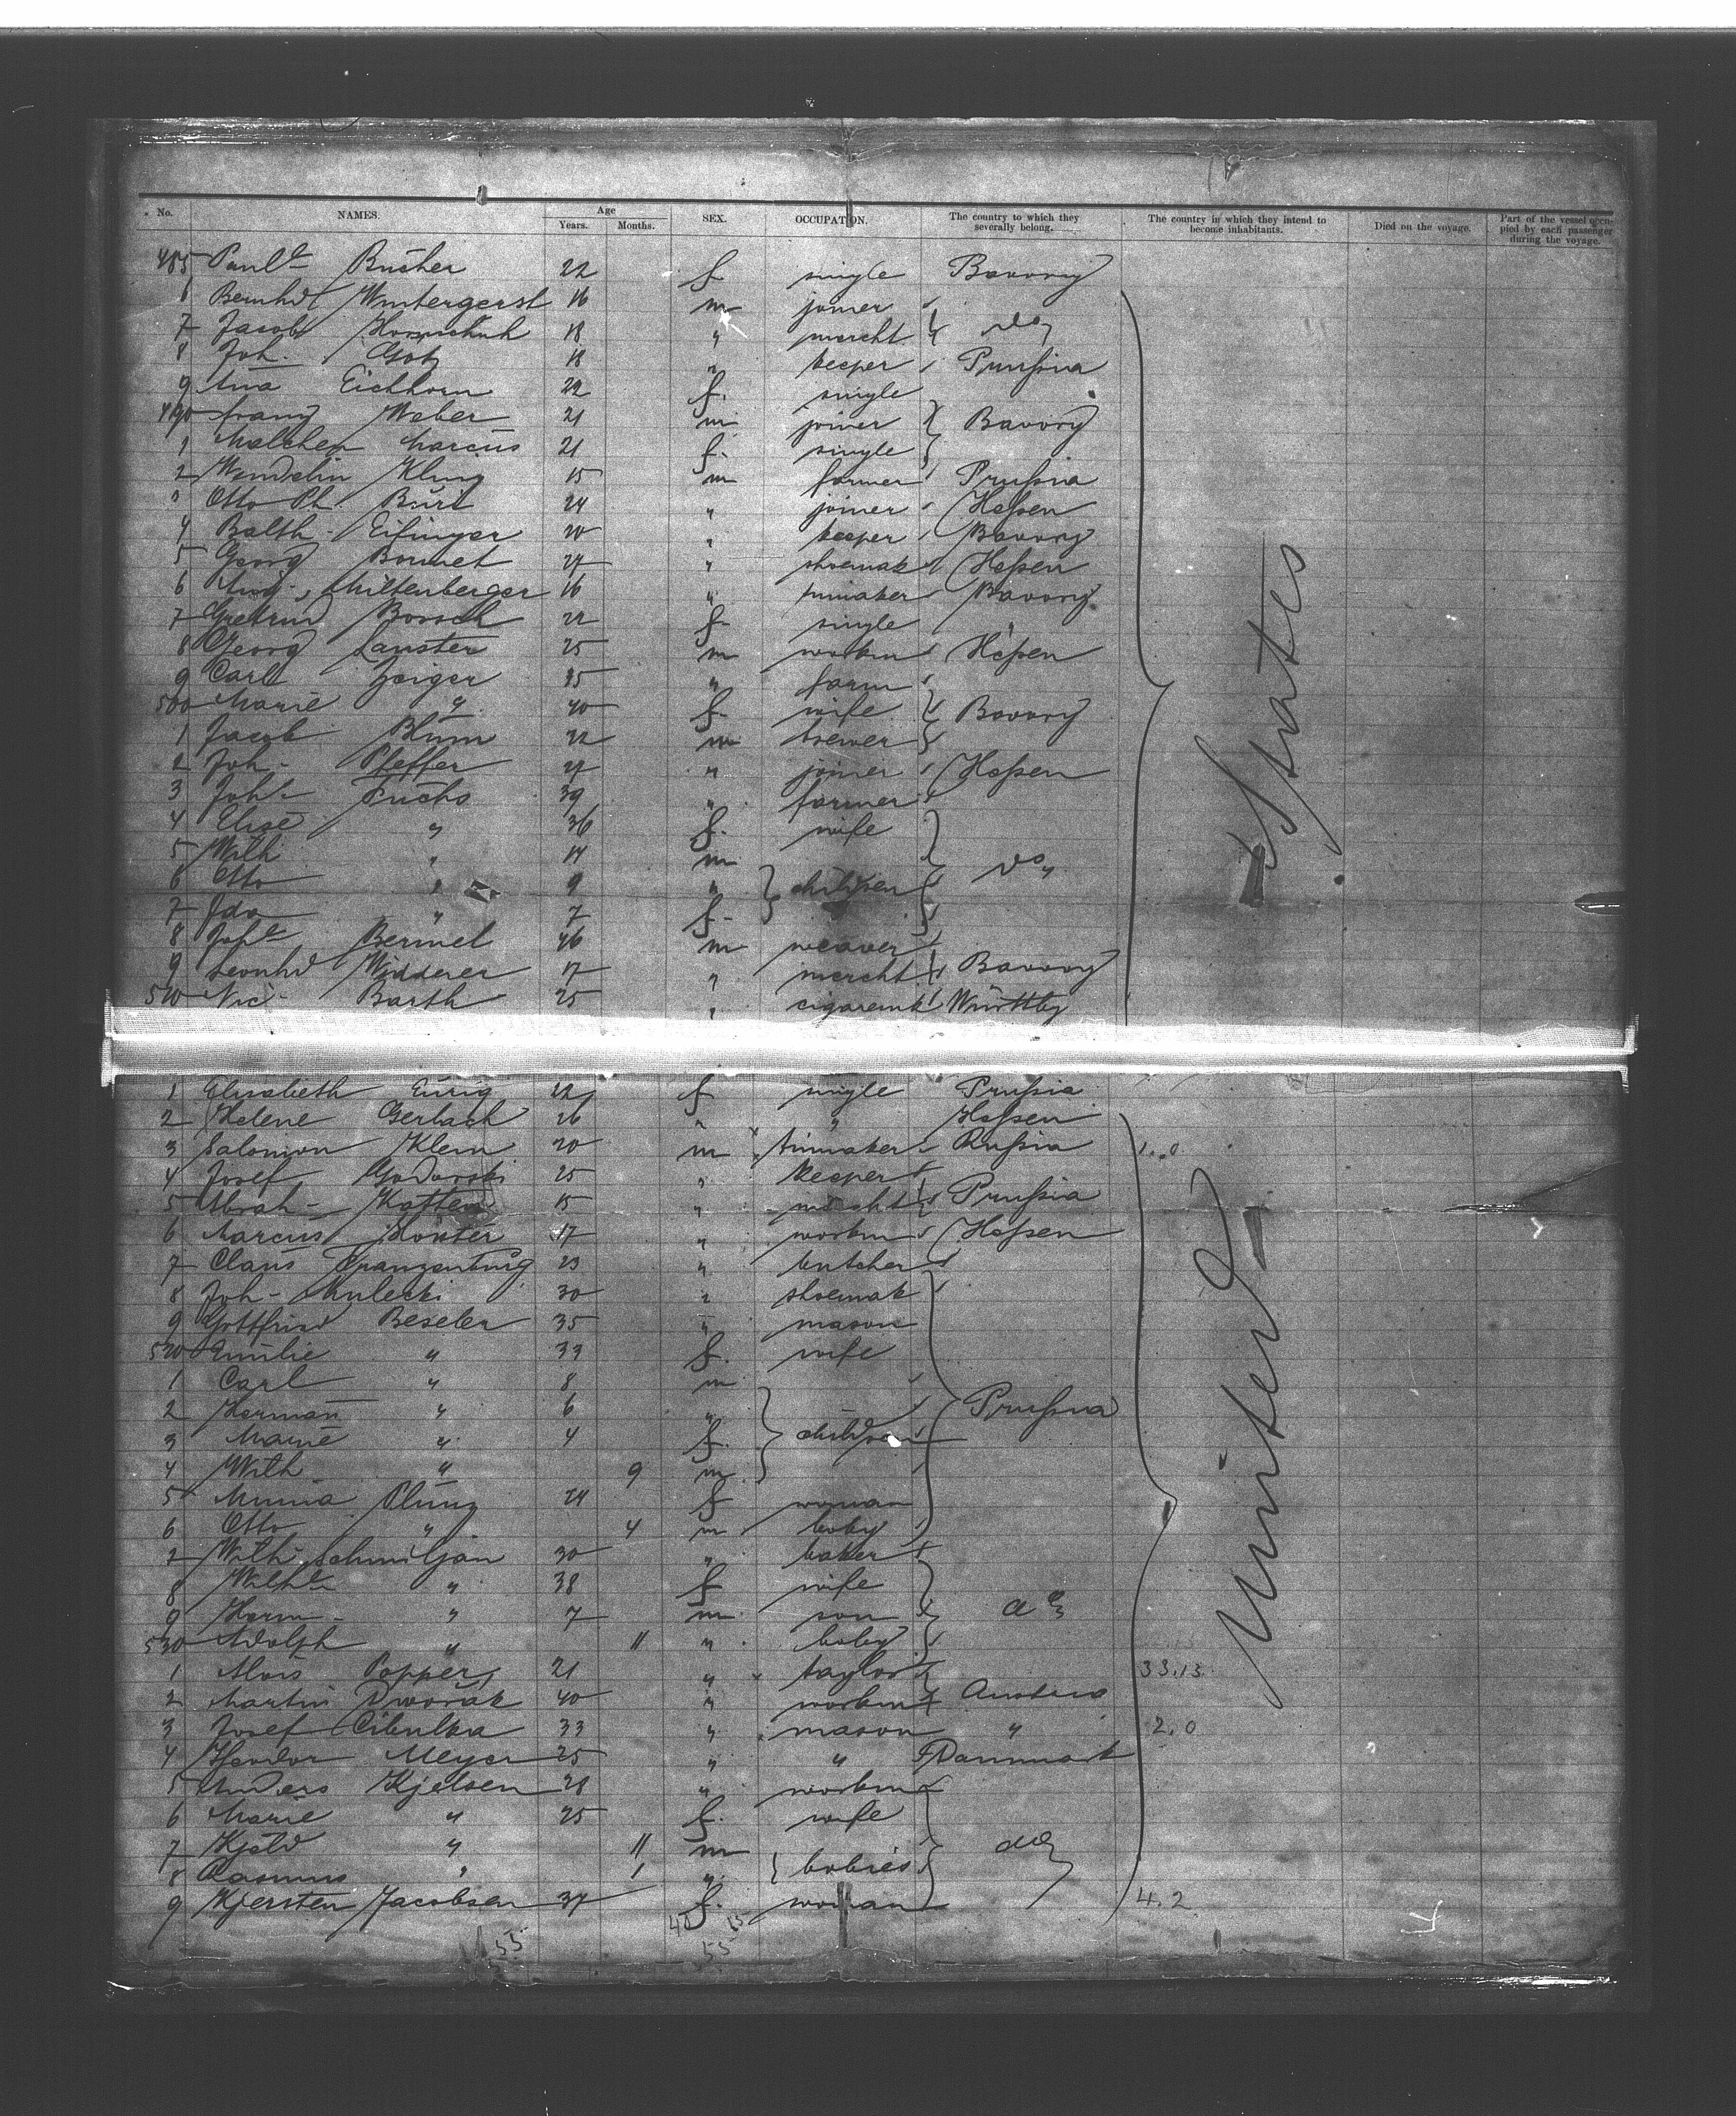 No. NAMES. Age Years. Months. SEX. OCCUPATION. The country to which they severally belong. The country in which they intend to become inhabitants. Died on the voyage. Part of the vessel occupied by each passenger during the voyage.
485 Paul^e Bücher 22 f single Bavary
6 Bernhdt Wintergerst 16 m joiner
7 Jacob 18 " mercht do
8 Joh. Götz 18 " keeper Prußia
9 Ana Eichhorn 22 f. single
490 Franz Weber 21 m joiner Bavary
1 Malchen Marcus 21 f. single
2 Wendelin Kling 15 m farmer Prußia
3 Otto Ph. Buri 24 " joiner Heßen
4 Balth. Eisinger 20 " keeper Bavary
5 Georg Bonnet 27 " shoemak Heßen
6 Aug. Miltenberger 16 " Bavary
7 Gretrud Boosch 22 f single "
8 Georg Lanster 25 m workm Heßen
9 Carl Geiger 35 " farm
500 Marie " 40 f. wife Bavary
1 Jacob Blum 22 m brewer
2 Joh. Pfeffer 27 " joiner Heßen
3 Joh. Fuchs 39 " farmer
4 Elise " 36 f. wife
5 Wilh " 14 m do
6 Otto " 9 " children
7 Ida " 7 f
8 Bermel 46 m weaver
9 Leonhd Widderer 17 " mercht Bavary
510 Nic. Barth 25 " cigaremk Württbg
States
1 Elisabeth Eurig 22 f single Prußia
2 Helene Gerlach 26 " " Heßen
3 Salomon Klein 20 m tinmaker Rußia
4 Josef 25 " keeper
5 Abrah. Katten 15 " mercht Prußia
6 Marcus Honter 17 " workm Heßen
7 Claus 23 " butcher
8 Joh. Mulecki 30 " shoemak
9 Gottfried Beseler 35 " mason
520 Emilie " 33 f. wife
1 Carl " 8 m
2 Herman " 6 " Prußia
3 Marie " 4 f. children
4 Wilh. " 9 m
5 24 f woman
6 Otto " 4 m baby
7 Wilh. Schmiljan 30 " baker
8 Wilh^e " 38 f wife
9 Herm. " 7 m son do
530 Adolph " 11 " baby
1 Alois Popper 21 " taylor 33.13
2 Martin Dworak 40 " workm Austria
3 Josef Cibulka 33 " mason " 2.0
4 Meyer 25 " " Danmark
5 Anders Kjelsen 28 " workm
6 Marie " 25 f. wife
7 Kjeld " 11 m do
8 Rasmus " 1 " babies
9 Kjersten Jacobsen 37 f. woman 4.2
United
55 40 15
55